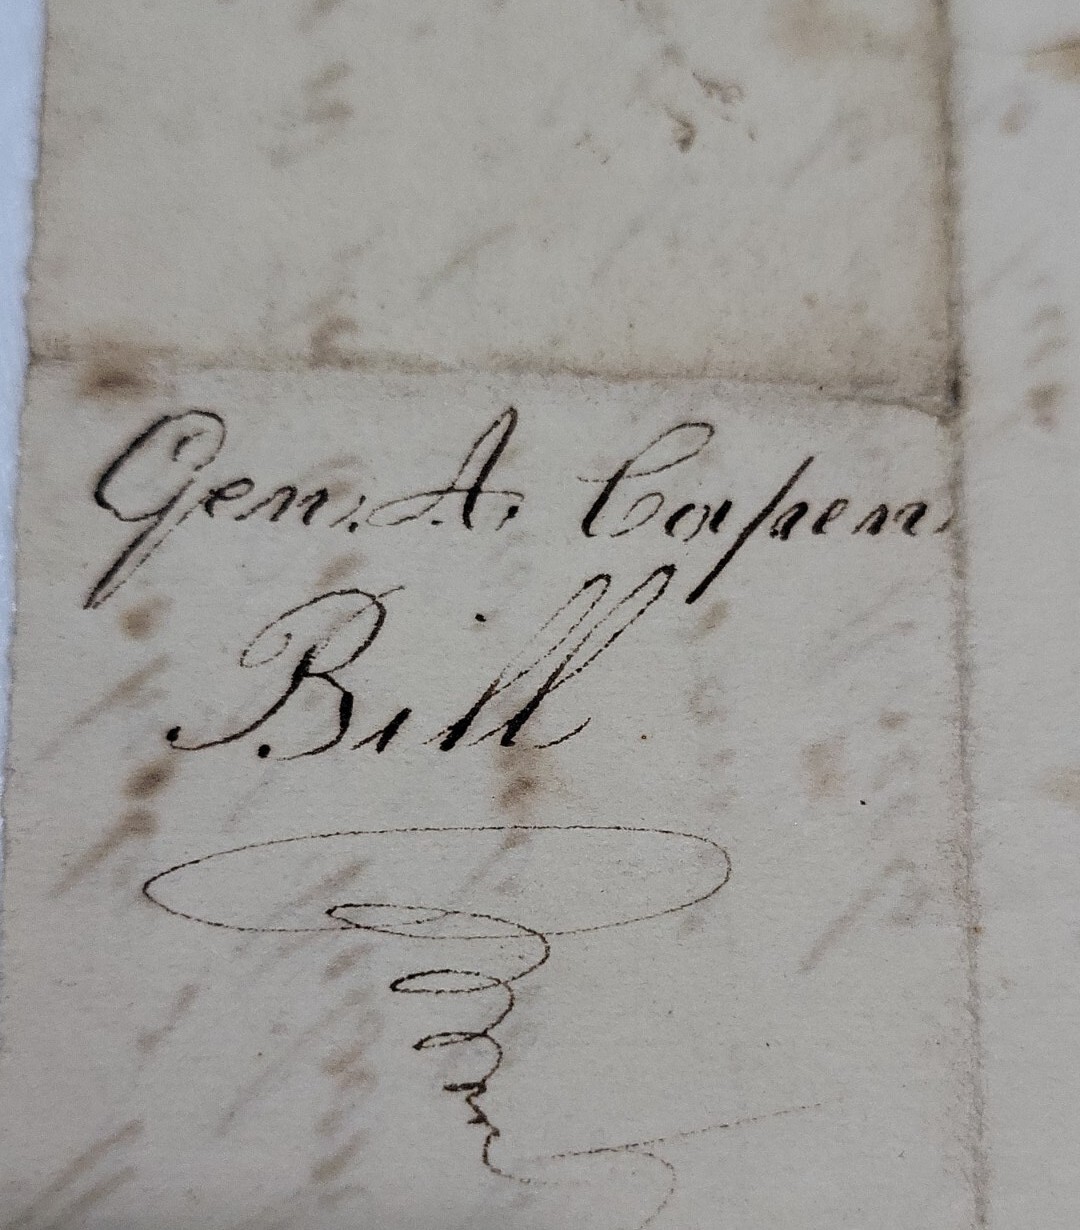 Gen. A. Capen.
Bill